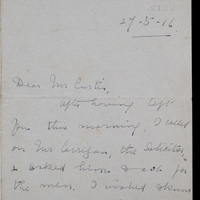 27-5-16.
Dear Mrs Curtis,
After having left
you this morning, I called
on Mr Corrigan, the Solicitor,
& asked him to act for
the men. I wished